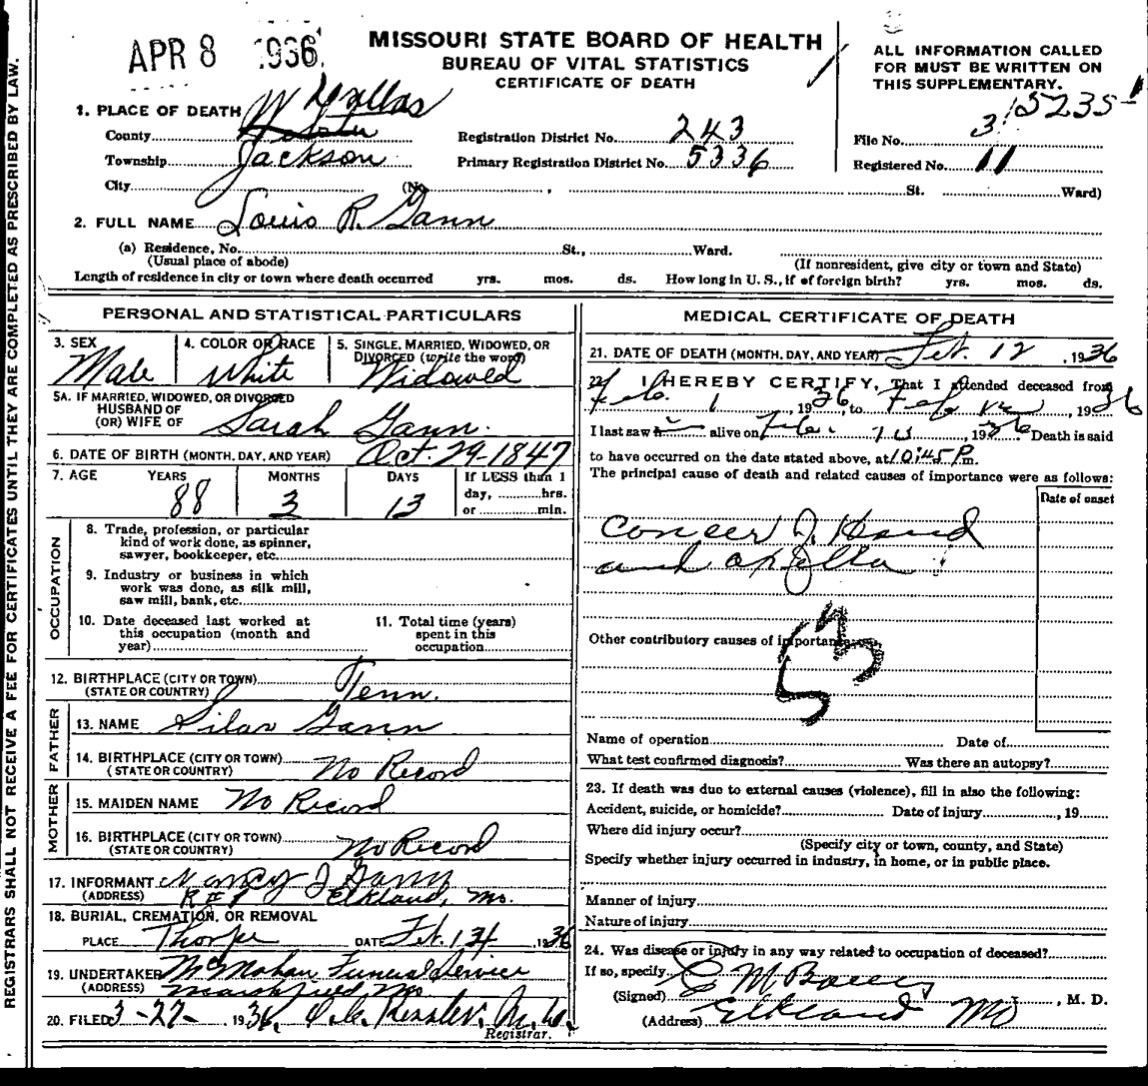 APR 8 1936
MISSOURI STATE BOARD OF HEALTH
BUREAU OF VITAL STATISTICS
CERTIFICATE OF DEATH
ALL INFORMATION CALLED
FOR MUST BE WRITTEN ON
THIS SUPPLEMENTARY.
1. PLACE OF DEATH
County Registration District No. 243 File No. 15235
Township Jackson Primary Registration District No. 5336 Registered No. 11
City (No. , St. Ward)
2. FULL NAME Louis R. Gann
(a) Residence, No. St., Ward.
(Usual place of abode) (If nonresident, give city or town and State)
Length of residence in city or town where death occurred yrs. mos. ds. How long in U. S., if of foreign birth? yrs. mos. ds.
PERSONAL AND STATISTICAL PARTICULARS
3. SEX Male 4. COLOR OR RACE White 5. SINGLE, MARRIED, WIDOWED, OR DIVORCED (write the word) Widowed
5A. IF MARRIED, WIDOWED, OR DIVORCED
HUSBAND OF
(OR) WIFE OF Sarah Gann.
6. DATE OF BIRTH (MONTH, DAY, AND YEAR) Oct. 29-1847
7. AGE YEARS 88 MONTHS 3 DAYS 13 If LESS than 1 day, hrs. or min.
OCCUPATION
8. Trade, profession, or particular
kind of work done, as spinner,
sawyer, bookkeeper, etc.
9. Industry or business in which
work was done, as silk mill,
saw mill, bank, etc.
10. Date deceased last worked at
this occupation (month and
year)
11. Total time (years)
spent in this
occupation
12. BIRTHPLACE (CITY OR TOWN)
(STATE OR COUNTRY) Tenn.
FATHER
13. NAME Silas Gann
14. BIRTHPLACE (CITY OR TOWN)
(STATE OR COUNTRY) No Record
MOTHER
15. MAIDEN NAME No Record
16. BIRTHPLACE (CITY OR TOWN)
(STATE OR COUNTRY) No Record
17. INFORMANT Nancy J Gann
(ADDRESS) Elkland, Mo.
18. BURIAL, CREMATION, OR REMOVAL
PLACE Thorpe DATE Feb. 14 1936
19. UNDERTAKER McMahan Funeral Service
(ADDRESS) Marshfield Mo
20. FILED 3-27- 1936,
Registrar.
MEDICAL CERTIFICATE OF DEATH
21. DATE OF DEATH (MONTH, DAY, AND YEAR) Feb. 12, 1936
22. I HEREBY CERTIFY, That I attended deceased from
Feb. 1, 1936, to Feb 12, 1936
I last saw alive on Feb. 1936 Death is said
to have occurred on the date stated above, at 10:45 P. m.
The principal cause of death and related causes of importance were as follows:
Date of onset
Cancer of Hand
and
Other contributory causes of importance:
53
Name of operation Date of
What test confirmed diagnosis? Was there an autopsy?
23. If death was due to external causes (violence), fill in also the following:
Accident, suicide, or homicide? Date of injury , 19
Where did injury occur?
(Specify city or town, county, and State)
Specify whether injury occurred in industry, in home, or in public place.
Manner of injury
Nature of injury
24. Was disease or injury in any way related to occupation of deceased?
If so, specify
(Signed) , M. D.
(Address) Elkland Mo
REGISTRARS SHALL NOT RECEIVE A FEE FOR CERTIFICATES UNTIL THEY ARE COMPLETED AS PRESCRIBED BY LAW.